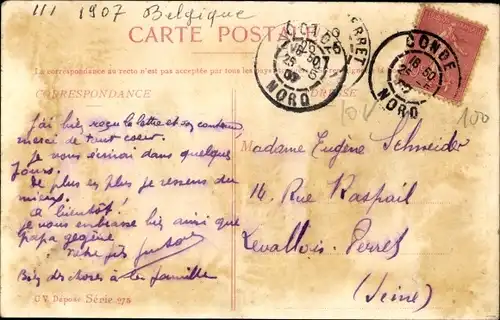 111 1907 Belgique
CARTE POSTALE
La correspondance au recto n'est pas acceptée par tous les pays
CORRESPONDANCE
PERRET
CONDÉ
16 50
25
NORD
25 5
07
NORD
10 V
100
J'ai bien reçu la lettre et son contenu
merci de tout cœur.
Je vous écrirai dans quelques
jours.
De plus en plus je ressens du
mieux.
à bientôt!
je vous embrasse bien ainsi que
papa
Votre fils
Bien des choses à la famille
Madame Eugène Schneider
14 Rue Raspail
Levallois-Perret
(Seine)
C V Déposé Série 275